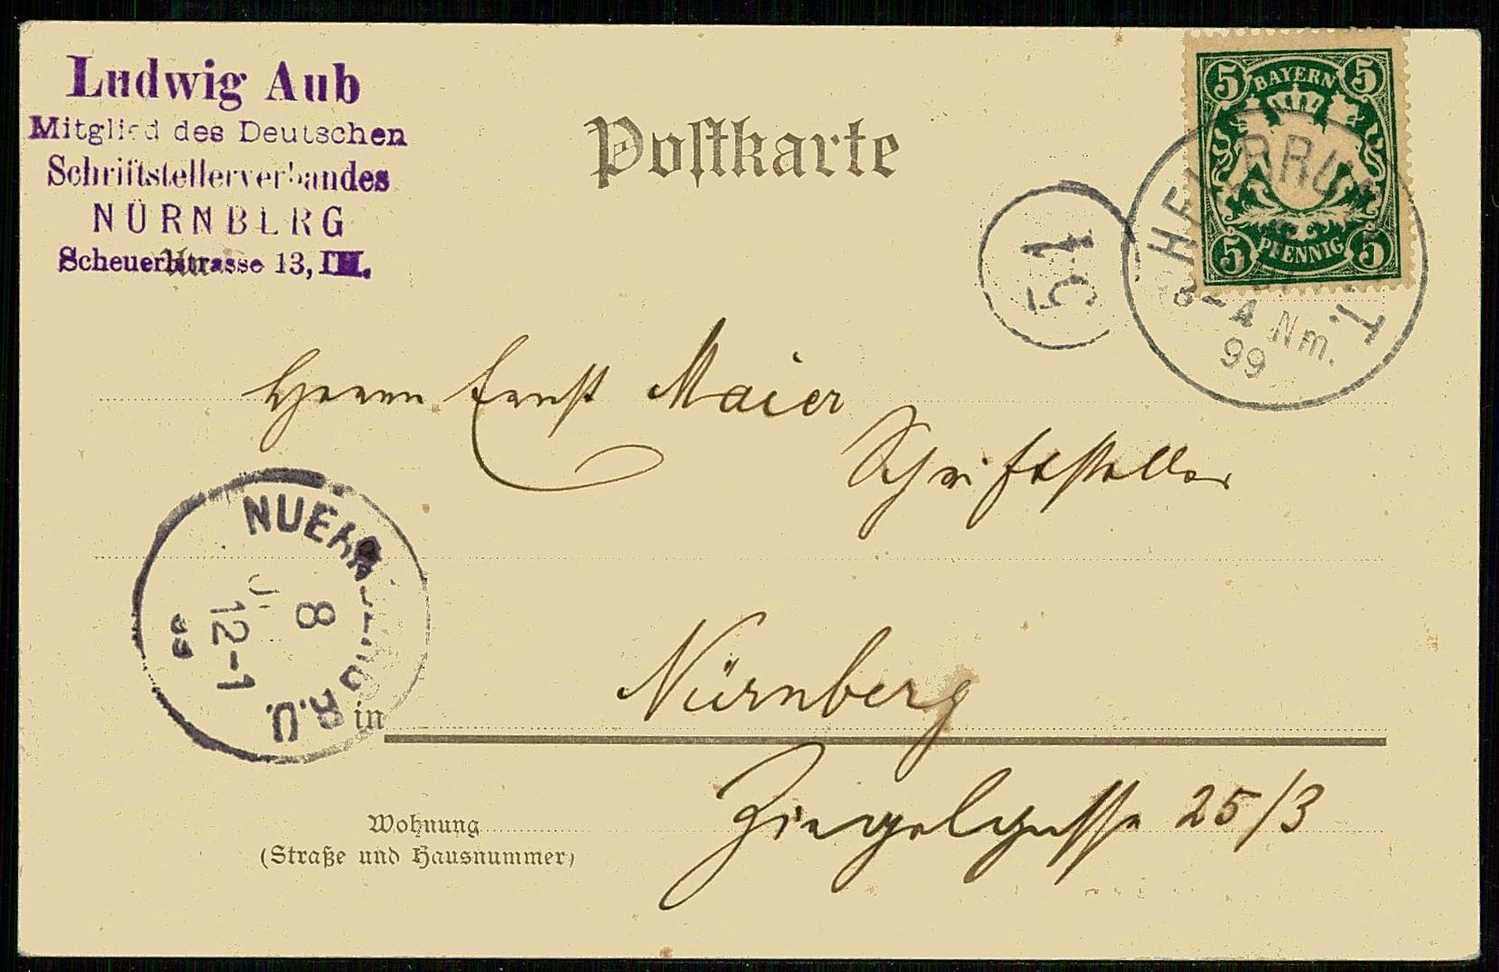 Ludwig Aub
Mitglied des Deutschen
Schriftstellerverbandes
NÜRNBERG
Scheuerlstrasse 13, III.
Postkarte
5 BAYERN 5
5 PFENNIG 5
51
3-4 Nm.
99
Herrn Ernst Maier
Schriftsteller
NUERNBERG R.U.
8
12-1
99
in Nürnberg
Ziegelgasse 25/3
Wohnung
(Straße und Hausnummer)